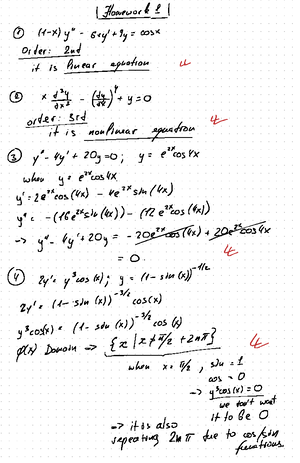 Homework 1
① (1-x) y" - 6xy' + 9y = cosx
Order: 2nd
it is linear equation
② x d³y/dx³ - (dy/dx)⁴ + y = 0
order: 3rd
it is nonlinear equation
③ y" - 4y' + 20y = 0; y = e²ˣcos4x
when y = e²ˣcos4x
y' = 2e²ˣcos(4x) - 4e²ˣsin(4x)
y" = -(16e²ˣsin(4x)) - (12e²ˣcos(4x))
→ y" - 4y' + 20y = -20e²ˣcos(4x) + 20e²ˣcos4x
= 0.
④ 2y' = y³cos(x); y = (1-sin(x))^-1/2
2y' = (1-sin(x))^-3/2 cos(x)
y³cos(x) = (1-sin(x))^-3/2 cos(x)
φ(x) Domain → {x | x ≠ π/2 + 2nπ}
when x = π/2, sin = 1
cos = 0
→ y³cos(x) = 0
we don't want
it to be 0
→ it is also
repeating 2nπ due to cos/sin
functions